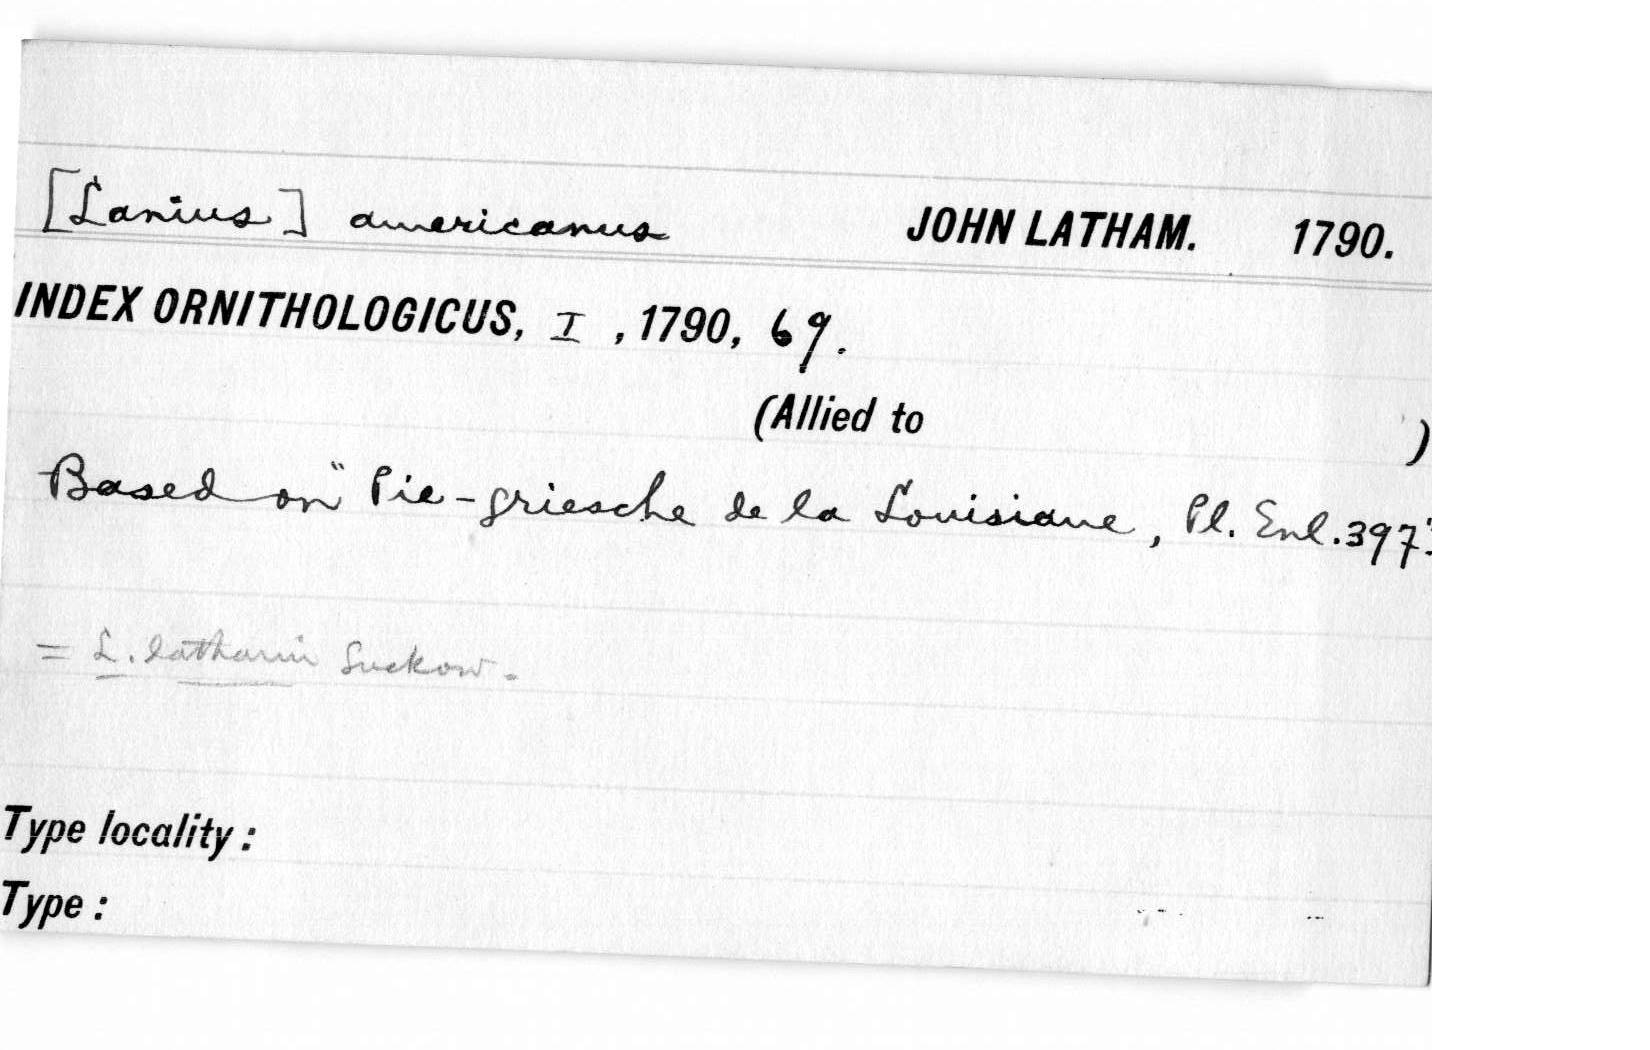 [Lanius] americanus JOHN LATHAM. 1790.
INDEX ORNITHOLOGICUS, I , 1790, 69.
(Allied to )
Based on "Pie-griesche de la Louisiane, Pl. Enl. 397
= L. lathami Suckow.
Type locality :
Type :